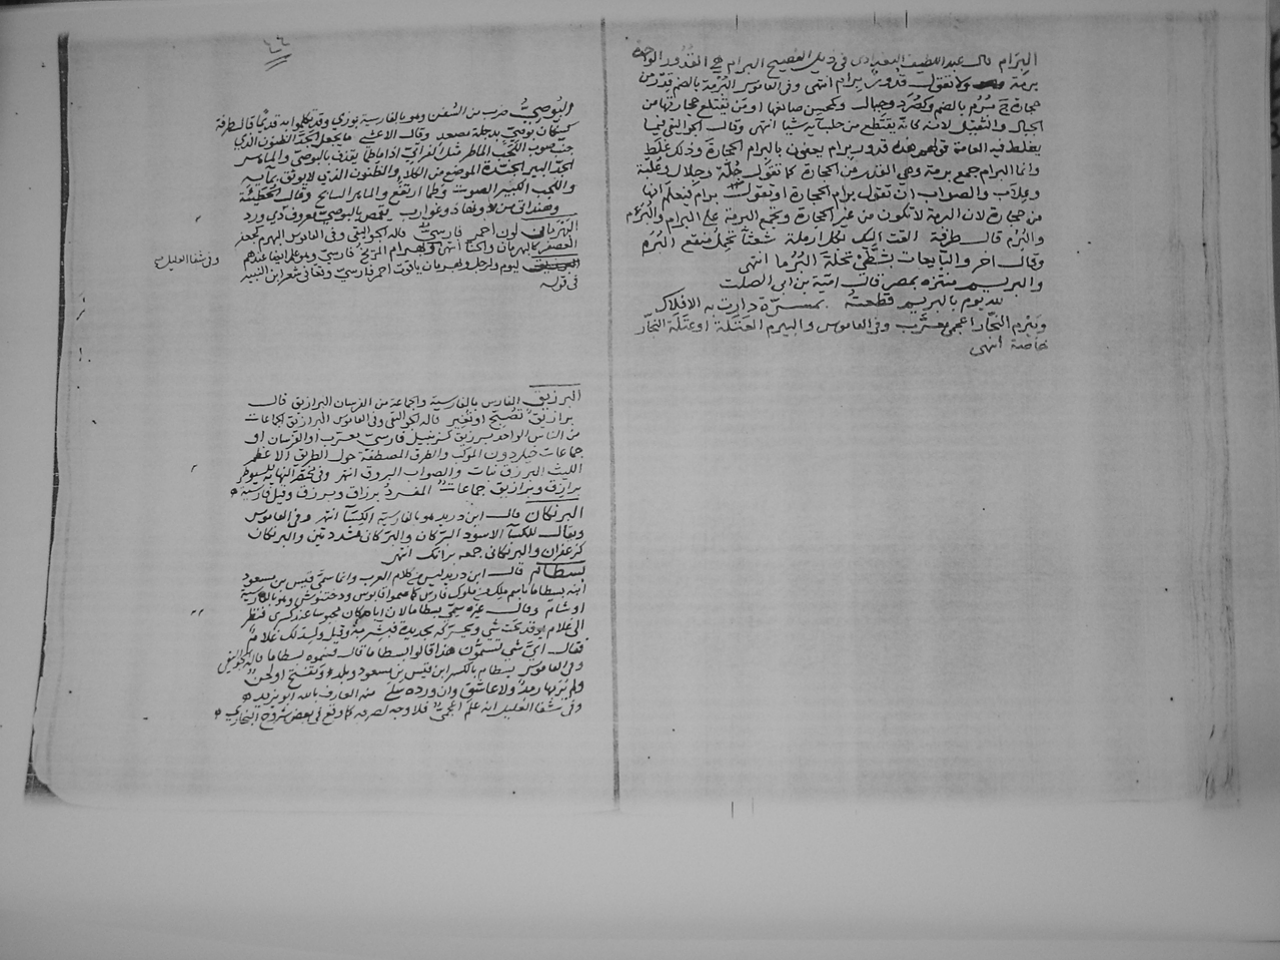 البرام قال عبد اللطيف البغدادي في ذيل الفصيح البرام هي القدور الواحدة
برمة ولا تقول قدور برام انتهى وفى القاموس البُرمة بالضم قدر من
حجارة ج بُرْم بالضم وكصُرَد وجبال وكمحسن صانعها او من يقتلع حجارتها من
الجبال والثقيل لانه كانه يقتطع من جلسائه شيا انتهى وقال الجواليقي فيما
يغلط فيه العامة قولهم هذه قدور برام يعنون بالبرام الحجارة وذلك غلط
وانما البرام جمع برمة وهي القدر من الحجارة كما تقول جُلّة وجِلال وعُلبة
وعِلاب والصواب ان تقول برام الحجارة او تقول برام فيعلم انها
من حجارة لان البرمة لا تكون من غير الحجارة وتجمع البرمة على البرام والبُرَم
والبُرْم قال طرفة القت اليك بكل ارملة شعثاء تحمل منقع البُرَم
وقال اخر والبايعات بشطّي نخلة البُرَما انتهى
والبريم منتزه بمصر قال امية بن ابي الصلت
لله يوم بالبريم قطعته بمسرّة دارت به الافلاك
وبَيْرم النجّار اعجمي معرّب وفى القاموس والبيرم العَتَلة او عتَلة النجّار
خاصة انتهى
٤٤
البُوصِيّ ضرب من السُفن وهو بالفارسية بوزي وقد تكلموا به قديمًا قال طرفة
كسكّان بوصيّ بدجلة مصعد وقال الاعشى ما يجعل الجُدّ الظنون الذي
جنّب صوب اللَّجِب الماطر مثل الفراتي اذا ما طما يقذف بالبوصي والماهر
الجدّ البير الجيّدة الموضع من الكلأ والظنون الذي لا يوثق بمآيه
واللجب الكبير الصوت وطما ارتفع والماهر السابح وقال الحطيئة
البَهْرَمان لون احمر فارسي قاله الجواليقي وفى القاموس البهرم كجعفر
العصفر كالبهرمان والحنا انتهى وبهرام المرّيخ فارسي
وفى شفا الغليل
ليوم ولرجل وبهرمان ياقوت احمر فارسي
فى قوله
البرزيق الفارس بالفارسية والجماعة من الفرسان البرازيق قال
برازيق تصبّح او تُغير قاله الجواليقي وفى القاموس البرازيق الجماعات
من الناس الواحد برزيق كزنبيل فارسي معرب او الفرسان او
جماعات خيل دون الموكب والطرق المصطفّة حول الطريق الاعظم
الليث البرزق نبات والصواب البروق انتهى وفى مختصر النهاية للسيوطى
برازق وبرازيق جماعات المفرد برزاق وبرزق وقيل فارسية
البرنكان قال ابن دريد هو بالفارسية الكساء انتهى وفى القاموس
ويقال للكساء الاسود البَرَّكان والبرّكاني مشددتين والبرنكان
كزعفران والبرنكاني جمعه برانك انتهى
بسطام قال ابن دريد ليس من كلام العرب وانما سمّى قيس بن مسعود
ابنه بسطاما باسم ملك من ملوك فارس كما سموا قابوس ودختنوش وهو بالفارسية
اوستام وقال غيره سمّي بسطاما لان اباه كان محبوسا عند كسرى فنظر
الى غلام يوقد تحت شي ويحركه بحديدة فبشر به وقيل ولد لك غلام
فقال اي شي تسمون هذا قالوا بسطاما قال فسموه بسطاما قاله الجواليقي
وفى القاموس بسطام بالكسر ابن قيس بن مسعود وبلد وتفتح او لحن
ولم يُرَ بها رمد ولا عاشق وان ورده سلى منه العارف بالله ابو يزيد
وفى شفا الغليل انه علم اعجمي فلا وجه لصرفه كما وقع فى بعض شروح البخاري